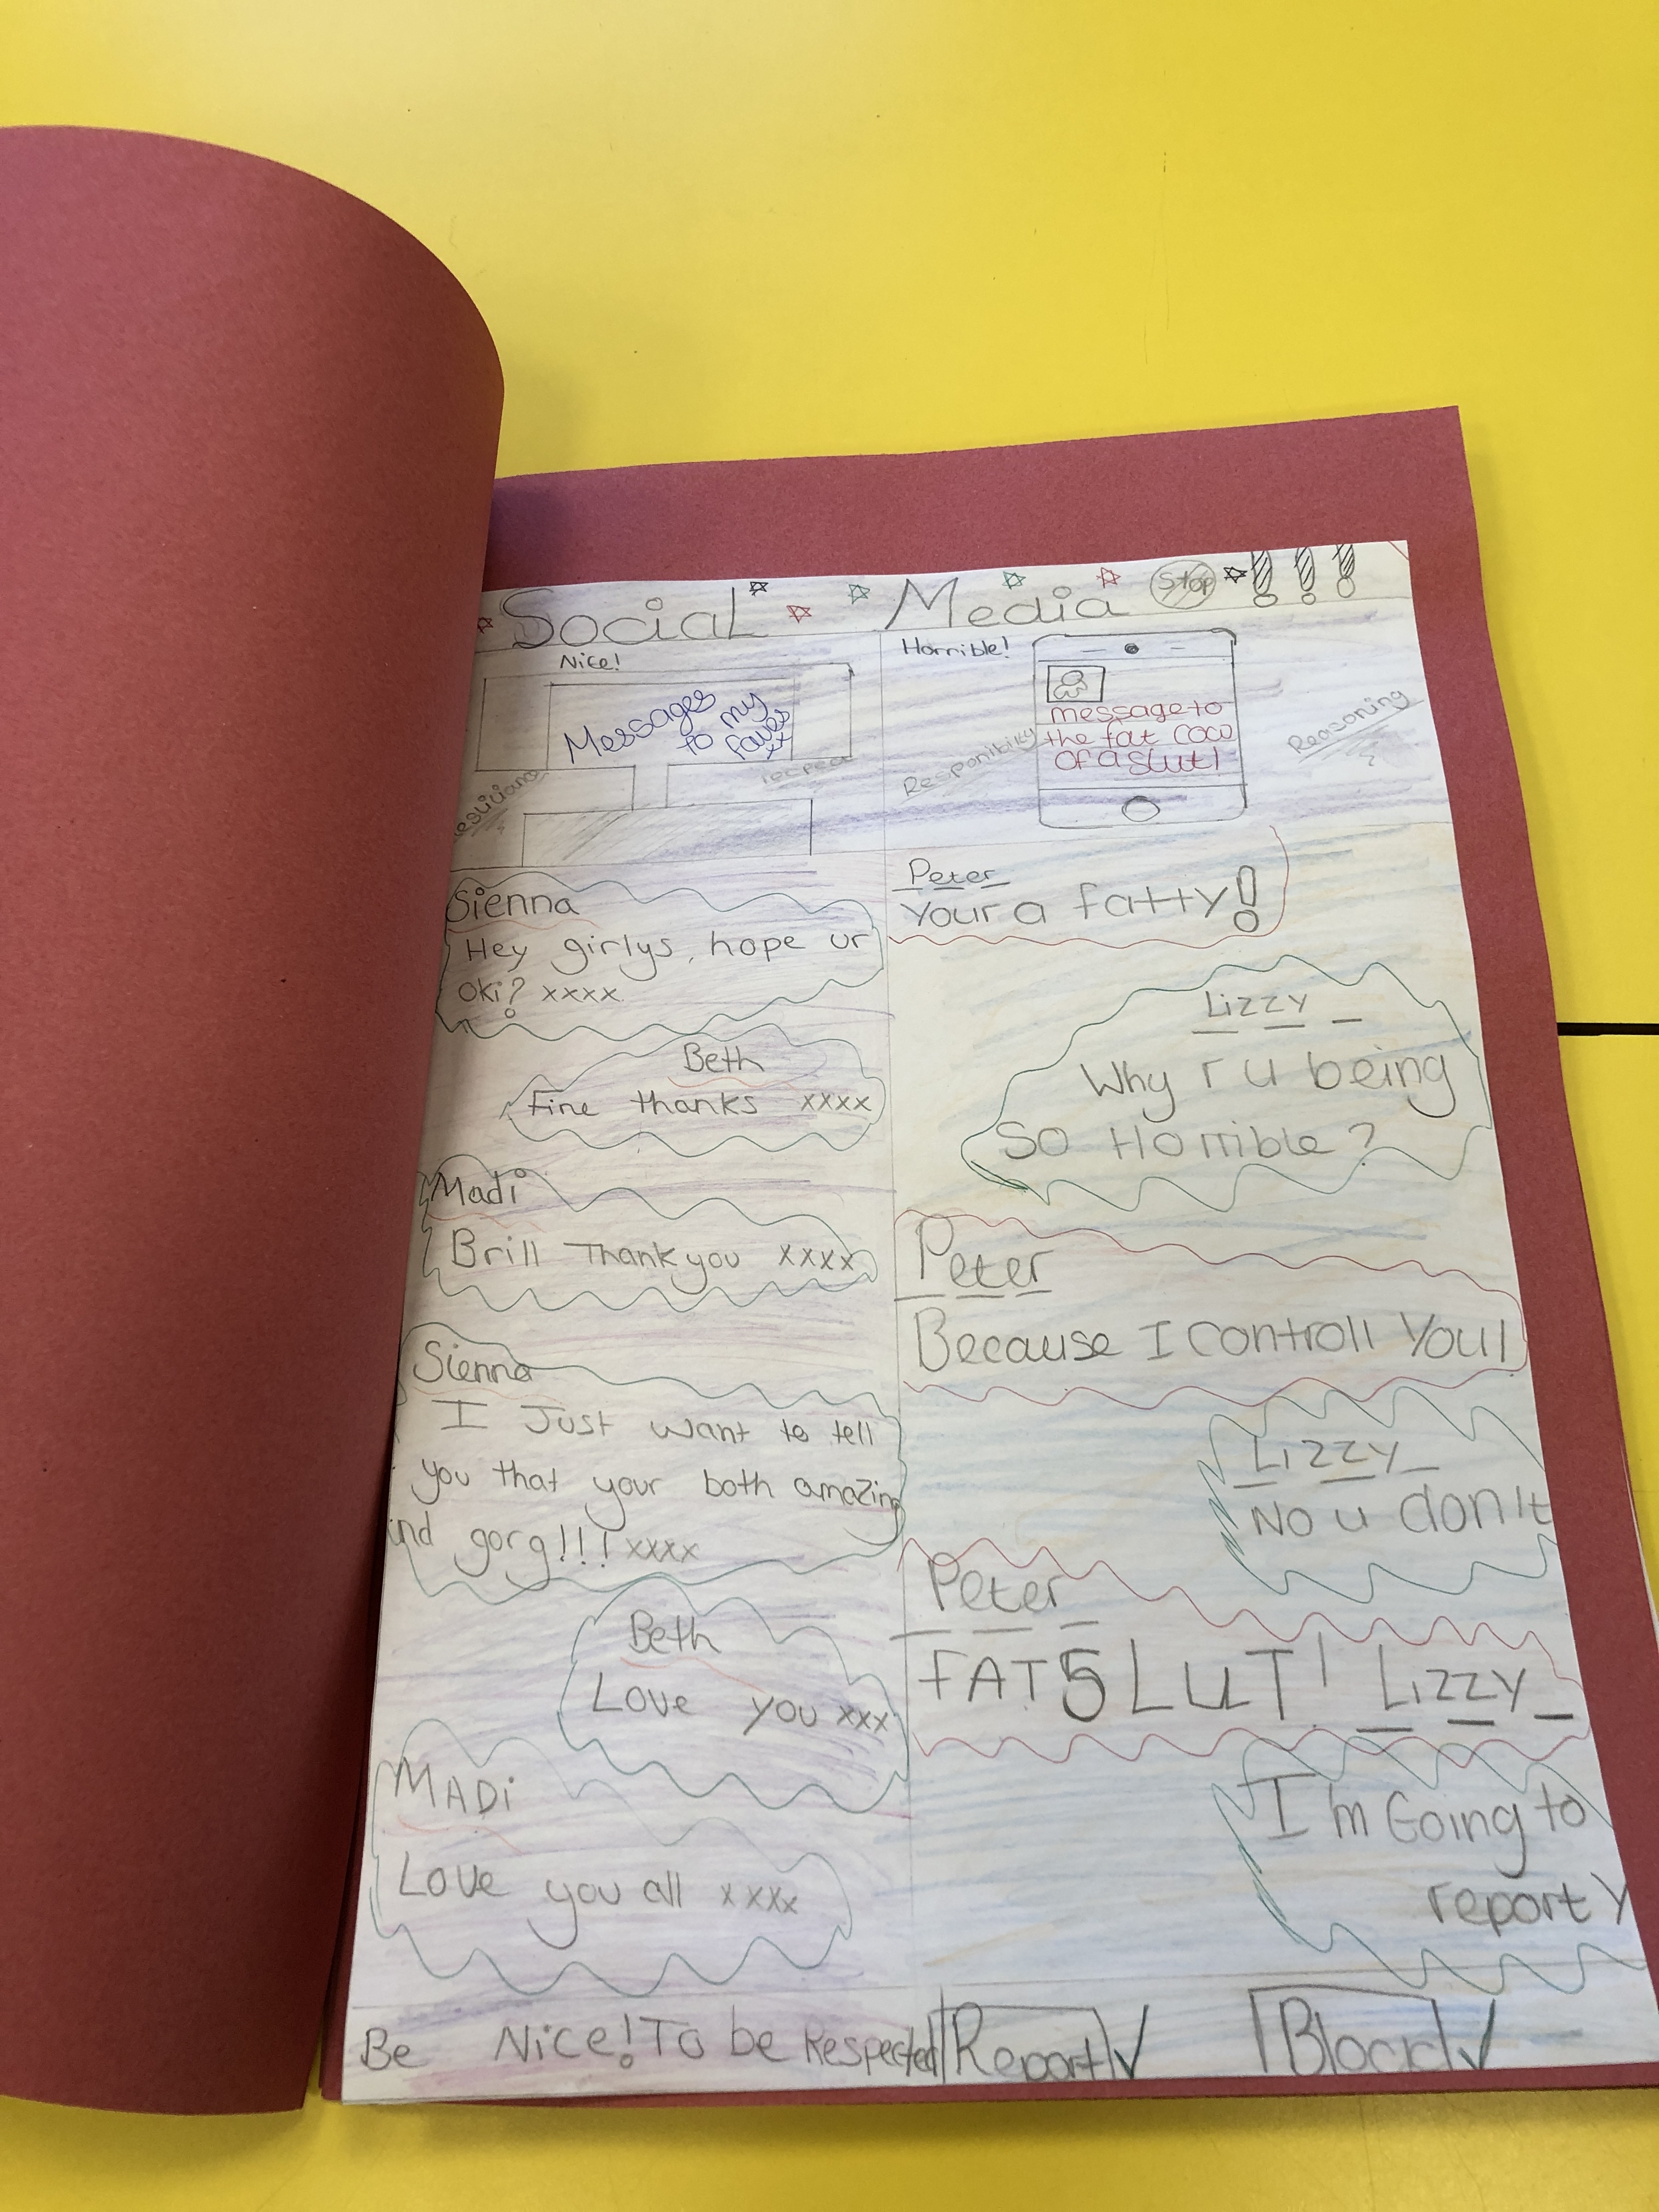 Social Media Stop !!!
Nice!
Messages
to my
faves
xx
Horrible!
message to
the fat cow
of a slut!
Reasoning
Sienna
Hey girlys, hope ur
oki? xxxx
Beth
Fine thanks xxxx
Madi
Brill Thankyou xxxx
Sienna
I Just want to tell
you that your both amazing
and gorg!!! xxxx
Beth
Love you xxx
MADi
Love you all xxxx
Be Nice! To be Respected
Peter
Your a fatty!
Lizzy
Why r u being
So Horrible?
Peter
Because I controll You!
Lizzy
No u don't
Peter
FAT SLUT! Lizzy
I'm Going to
report y
Report ✓ Block ✓